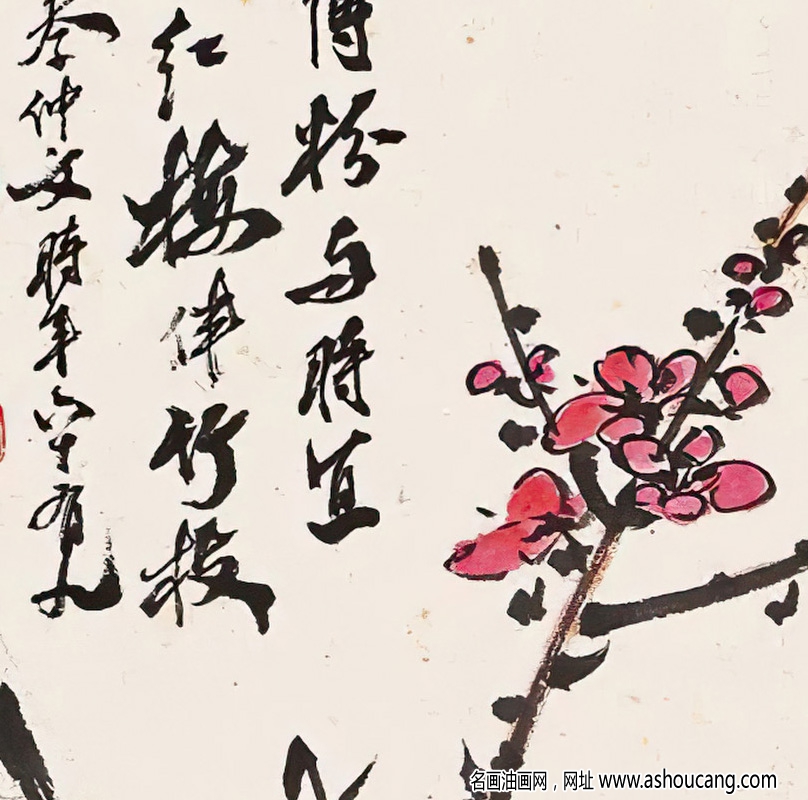 傅粉与時宜
红梅伴竹枝
秦仲文時年六十有九
名画油画网，网址 www.ashoucang.com